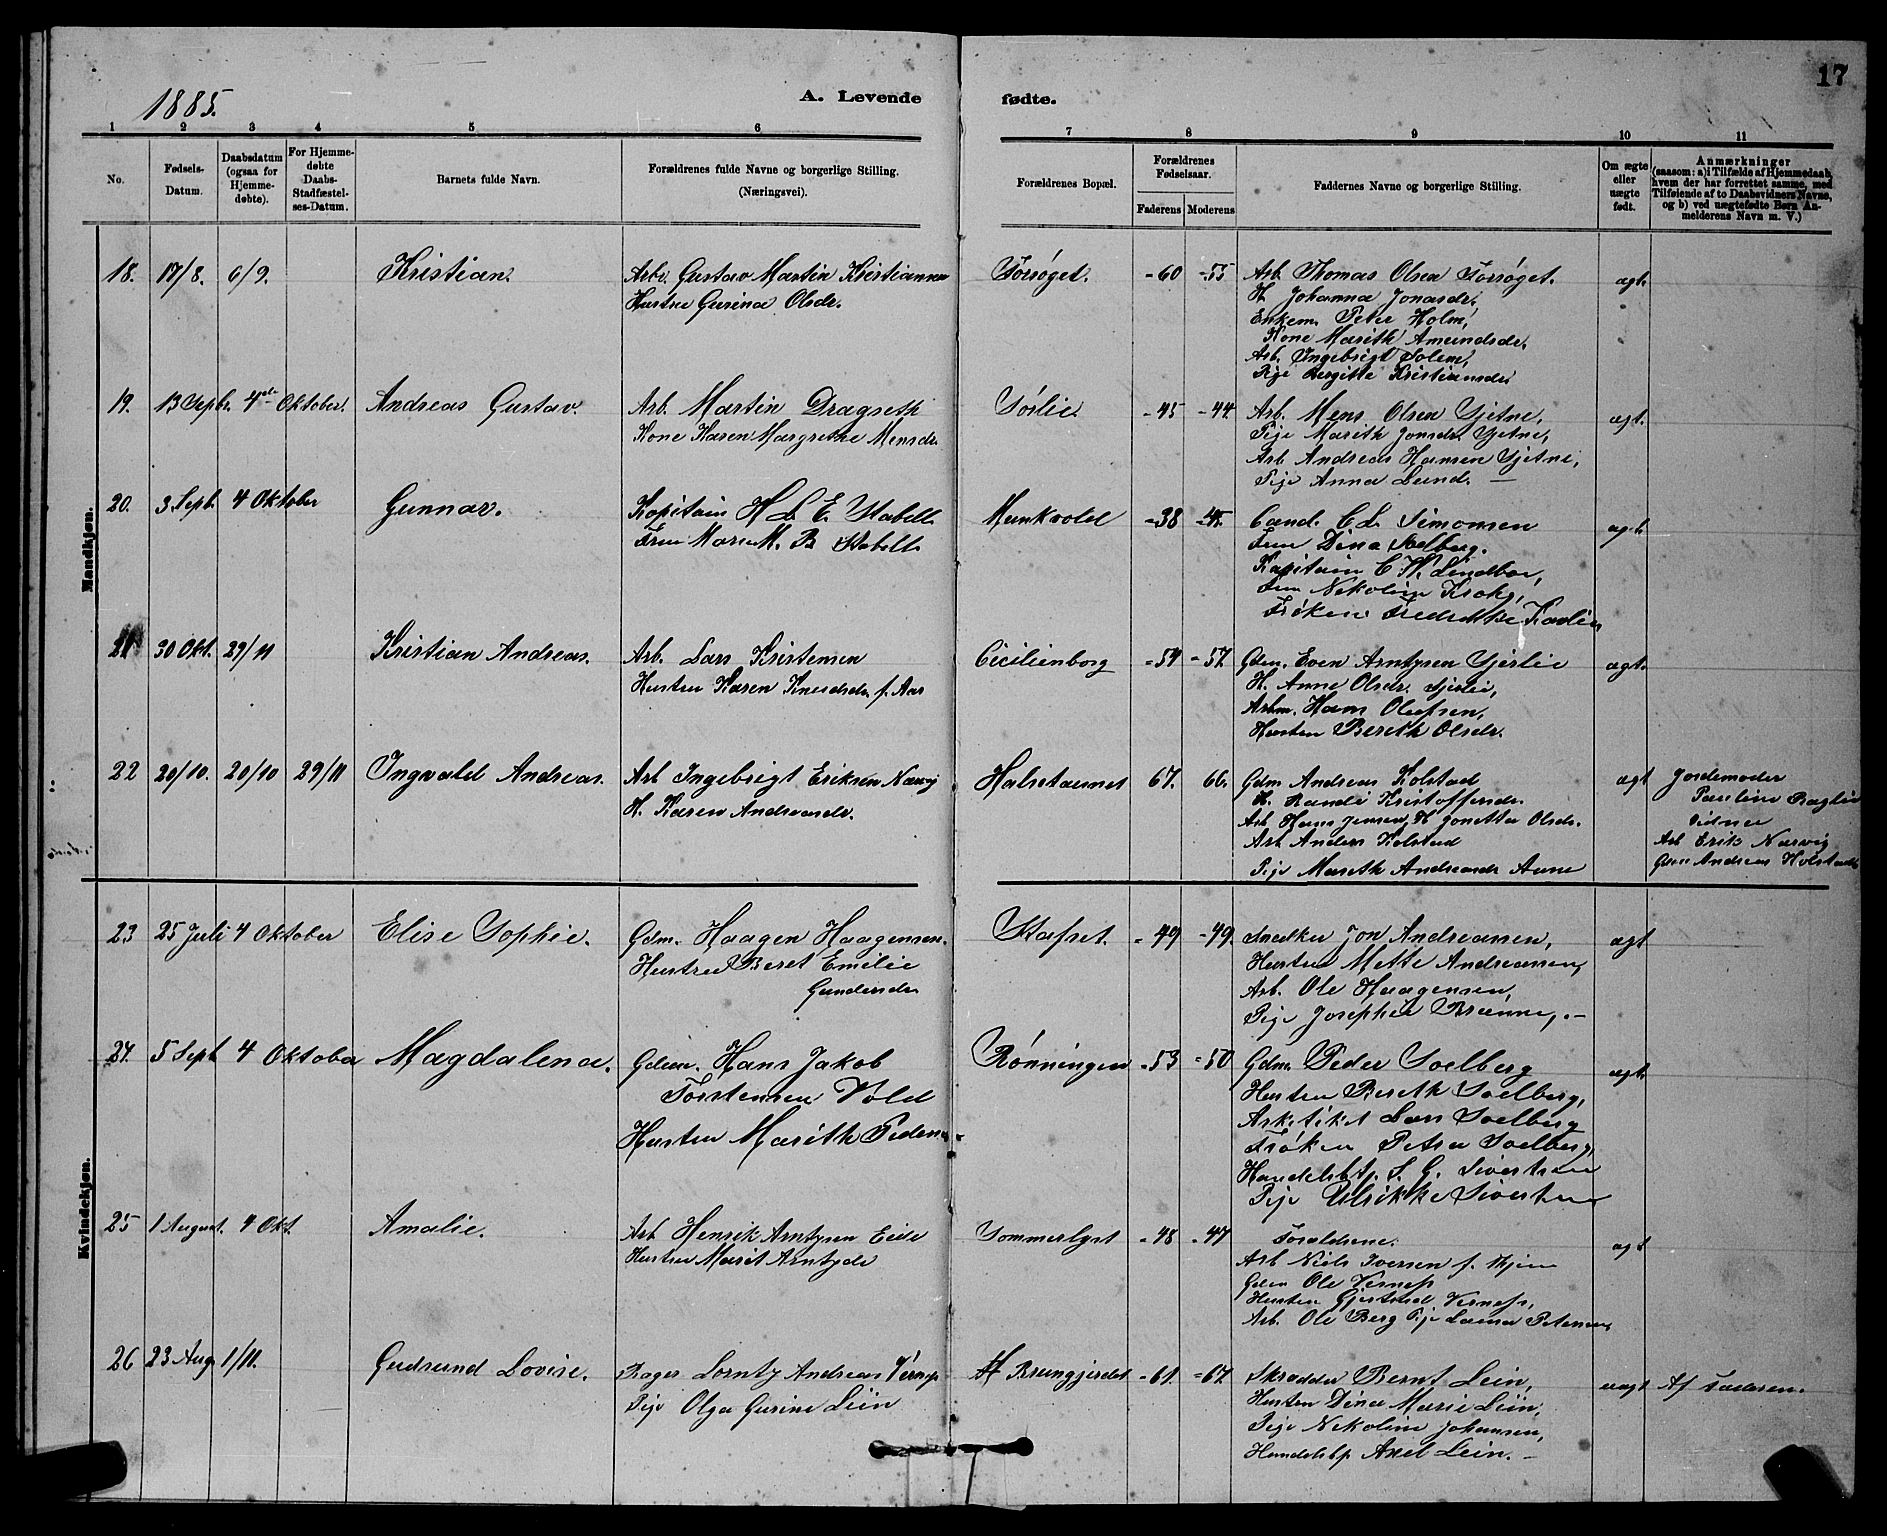 17
1885.
A. Levende fødte.
1 2 3 4 5 6 7 8 9 10 11
No.
Fødsels-
Datum.
Daabsdatum
(ogsaa for
Hjemme-
døbte).
For Hjemme-
døbte
Daabs-
Stadfæstel-
ses-Datum.
Barnets fulde Navn.
Forældrenes fulde Navne og borgerlige Stilling.
(Næringsvei).
Forældrenes Bopæl.
Forældrenes
Fødselsaar.
Faderens Moderens
Faddernes Navne og borgerlige Stilling.
Om ægte
eller
uægte
født.
Anmærkninger
(saasom: a) i Tilfælde af Hjemmedaab,
hvem der har forrettet samme, med
Tilføiende af to Daabsvidners Navne,
og b) ved uægtefødte Børn An-
melderens Navn m. V.)
Mandkjøn.
18. 17/8. 6/9. Kristian.
Arb. Gustav Martin Kristiansen
Hustru Gurina Olsdr.
Forsøget. -60 -55
Arb. Thomas Olsen Forsøget.
H. Johanna Jonasdr.
Enkem. Peter Holm,
Kone Marith Amundsdr.
Arb. Ingebrigt Solem,
Pige Bergitte Kristiansdr.
ægt.
19. 13 Septbr. 4de Oktober. Andreas Gustav.
Arb. Martin Dragseth
Kone Karen Margrethe Mensdr.
Sørlie. -45 -44.
Arb. Mens Olsen Sjetne,
Pige Marith Jonsdr. Sjetne,
Arb. Andreas Hansen Sjetne,
Pige Anna Lund. —
ægt.
20. 3 Sept. 4 Oktober Gunnar.
Kapitain H. L. E. Stabell
Frue Marie M. B. Stabell
Munkvold -38 -45.
Cand. C. L. Simonsen
Frue Dina Solberg.
Kapitain C. W. Lindboe,
Frue Nikoline Krohg,
Frøken Fredrikke
ægt.
21 30 Okt. 29/11 Kristian Andreas.
Arb. Lars Kristensen
Hustru Karen Knudsdr. f. Aas
Cicilienborg -54 -57.
Gdm. Even Arntsen Sjetlie
H. Anne Olsdr. Sjetlie,
Arbm. Hans Olufsen,
Hustru Bereth Olsdr.
ægt.
22 20/10. 20/10 29/11 Ingvald Andreas.
Arb Ingebrigt Eriksen Narvig
H. Karen Andreasdr.
Halstaunet 67. 66.
Gdm Andreas Kolstad
H. Randi Kristoffersdr.
Arb Hans Jensen, H. Jonetta Olsdr.
Arb Anders Kolstad
Pige Mareth Andreasdr Aune
ægt
Jordemoder
Pauline
Vidner
Arb Erik Narvig
Gdm Andreas Kolstad
Kvindekjøn.
23 25 Juli 4 Oktober Elise Sophie.
Gdm. Haagen Haagensen.
Hustru Beret Emilie
Gundersdr.
Stafset. -49 -49.
Snedker Jon Andreassen,
Hustru Mette Andreassen,
Arb. Ole Haagensen,
Pige Josephie Brenne, —
ægt
24. 5 Sept 4 Oktober Magdalena.
Gdm. Hans Jakob
Torstensen Vold
Hustru Marith Pedersdr.
Rønningen -53 -50
Gdm. Peder Soelberg
Hustru Bereth Soelberg,
Arkitekt Lars Soelberg
Frøken Petra Soelberg,
Handelsbtj. S. G. Sivertsen
Pige Ulrikke Sivertsen
ægt.
25 1 August. 4 Okt. Amalie.
Arb Henrik Arntsen Eide
Hustru Marit Arntsdr
Sommerlyst -48 -47
Forældrene.
Arb Niels Iversen f. Stjør
Gdm Ole Værnes
Hustru Gjertrud Værnes,
Arb. Ole Berg Pige Laura Petersen,
ægt
26 23 Aug 1/11. Gudrund Lovise.
Bager Lorntz Andreas Værnes
Pige Olga Gurine Lein
Brungjerdet -61. -67.
Skrædder Bernt Lein,
Hustru Dina Marie Lein,
Pige Nikoline Johansen,
Handelsbtj. Axel Lein. —
uægt
Af faderen.